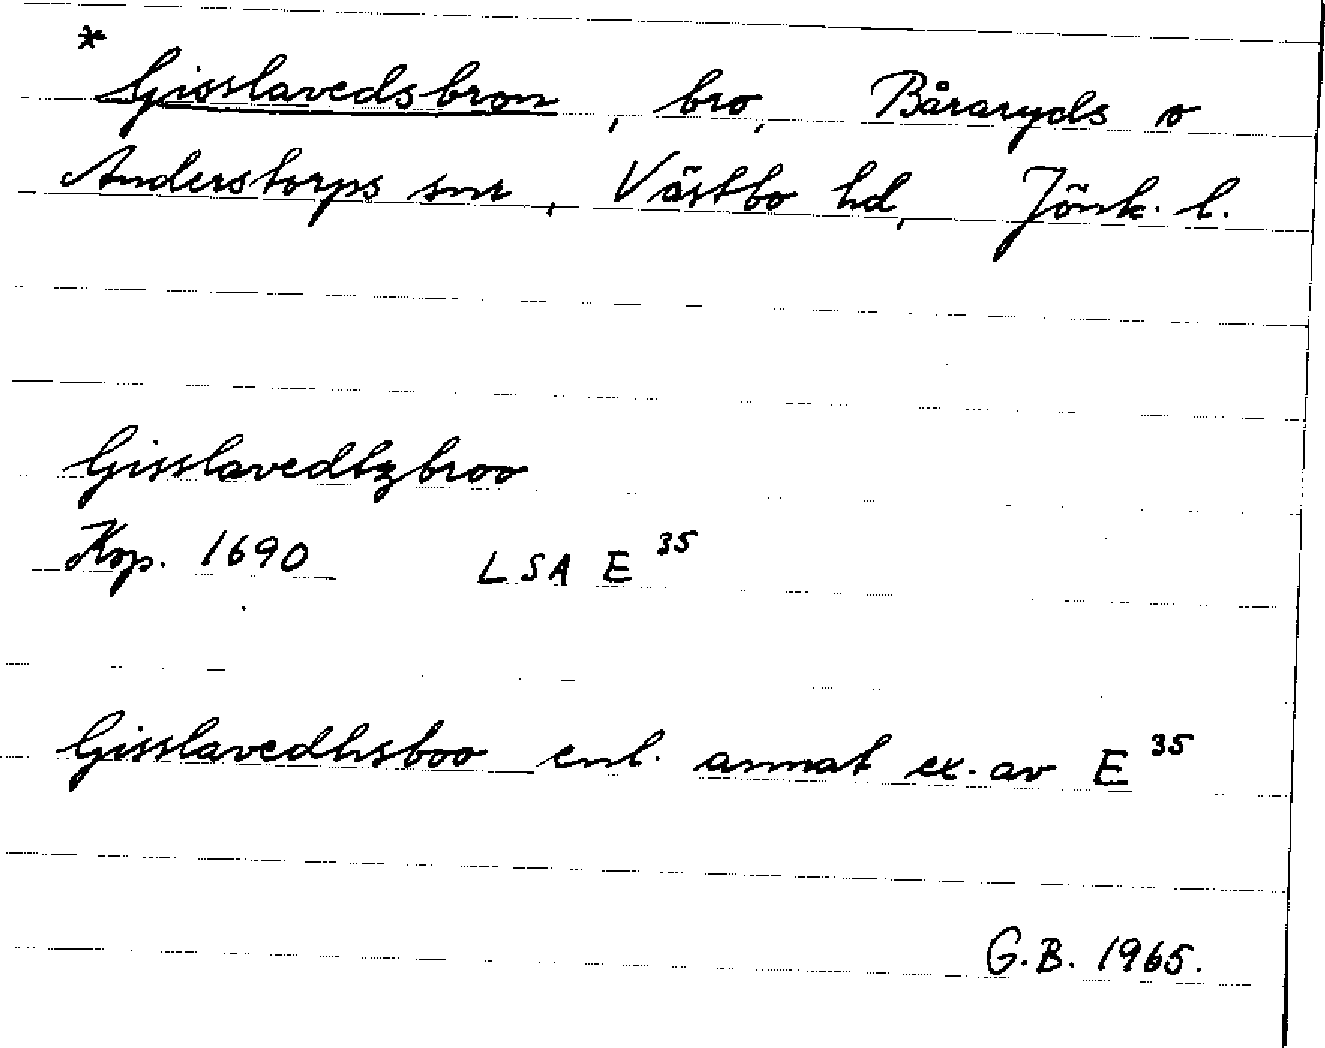 *
Gisslavedsbron, bro, Båraryds o
Anderstorps snr, Västbo hd, Jönk. l.
Gisslavedtzbroo
Kop. 1690 LSA E 35
Gisslavedhsboo enl. annat ex. av E 35
G.B. 1965.